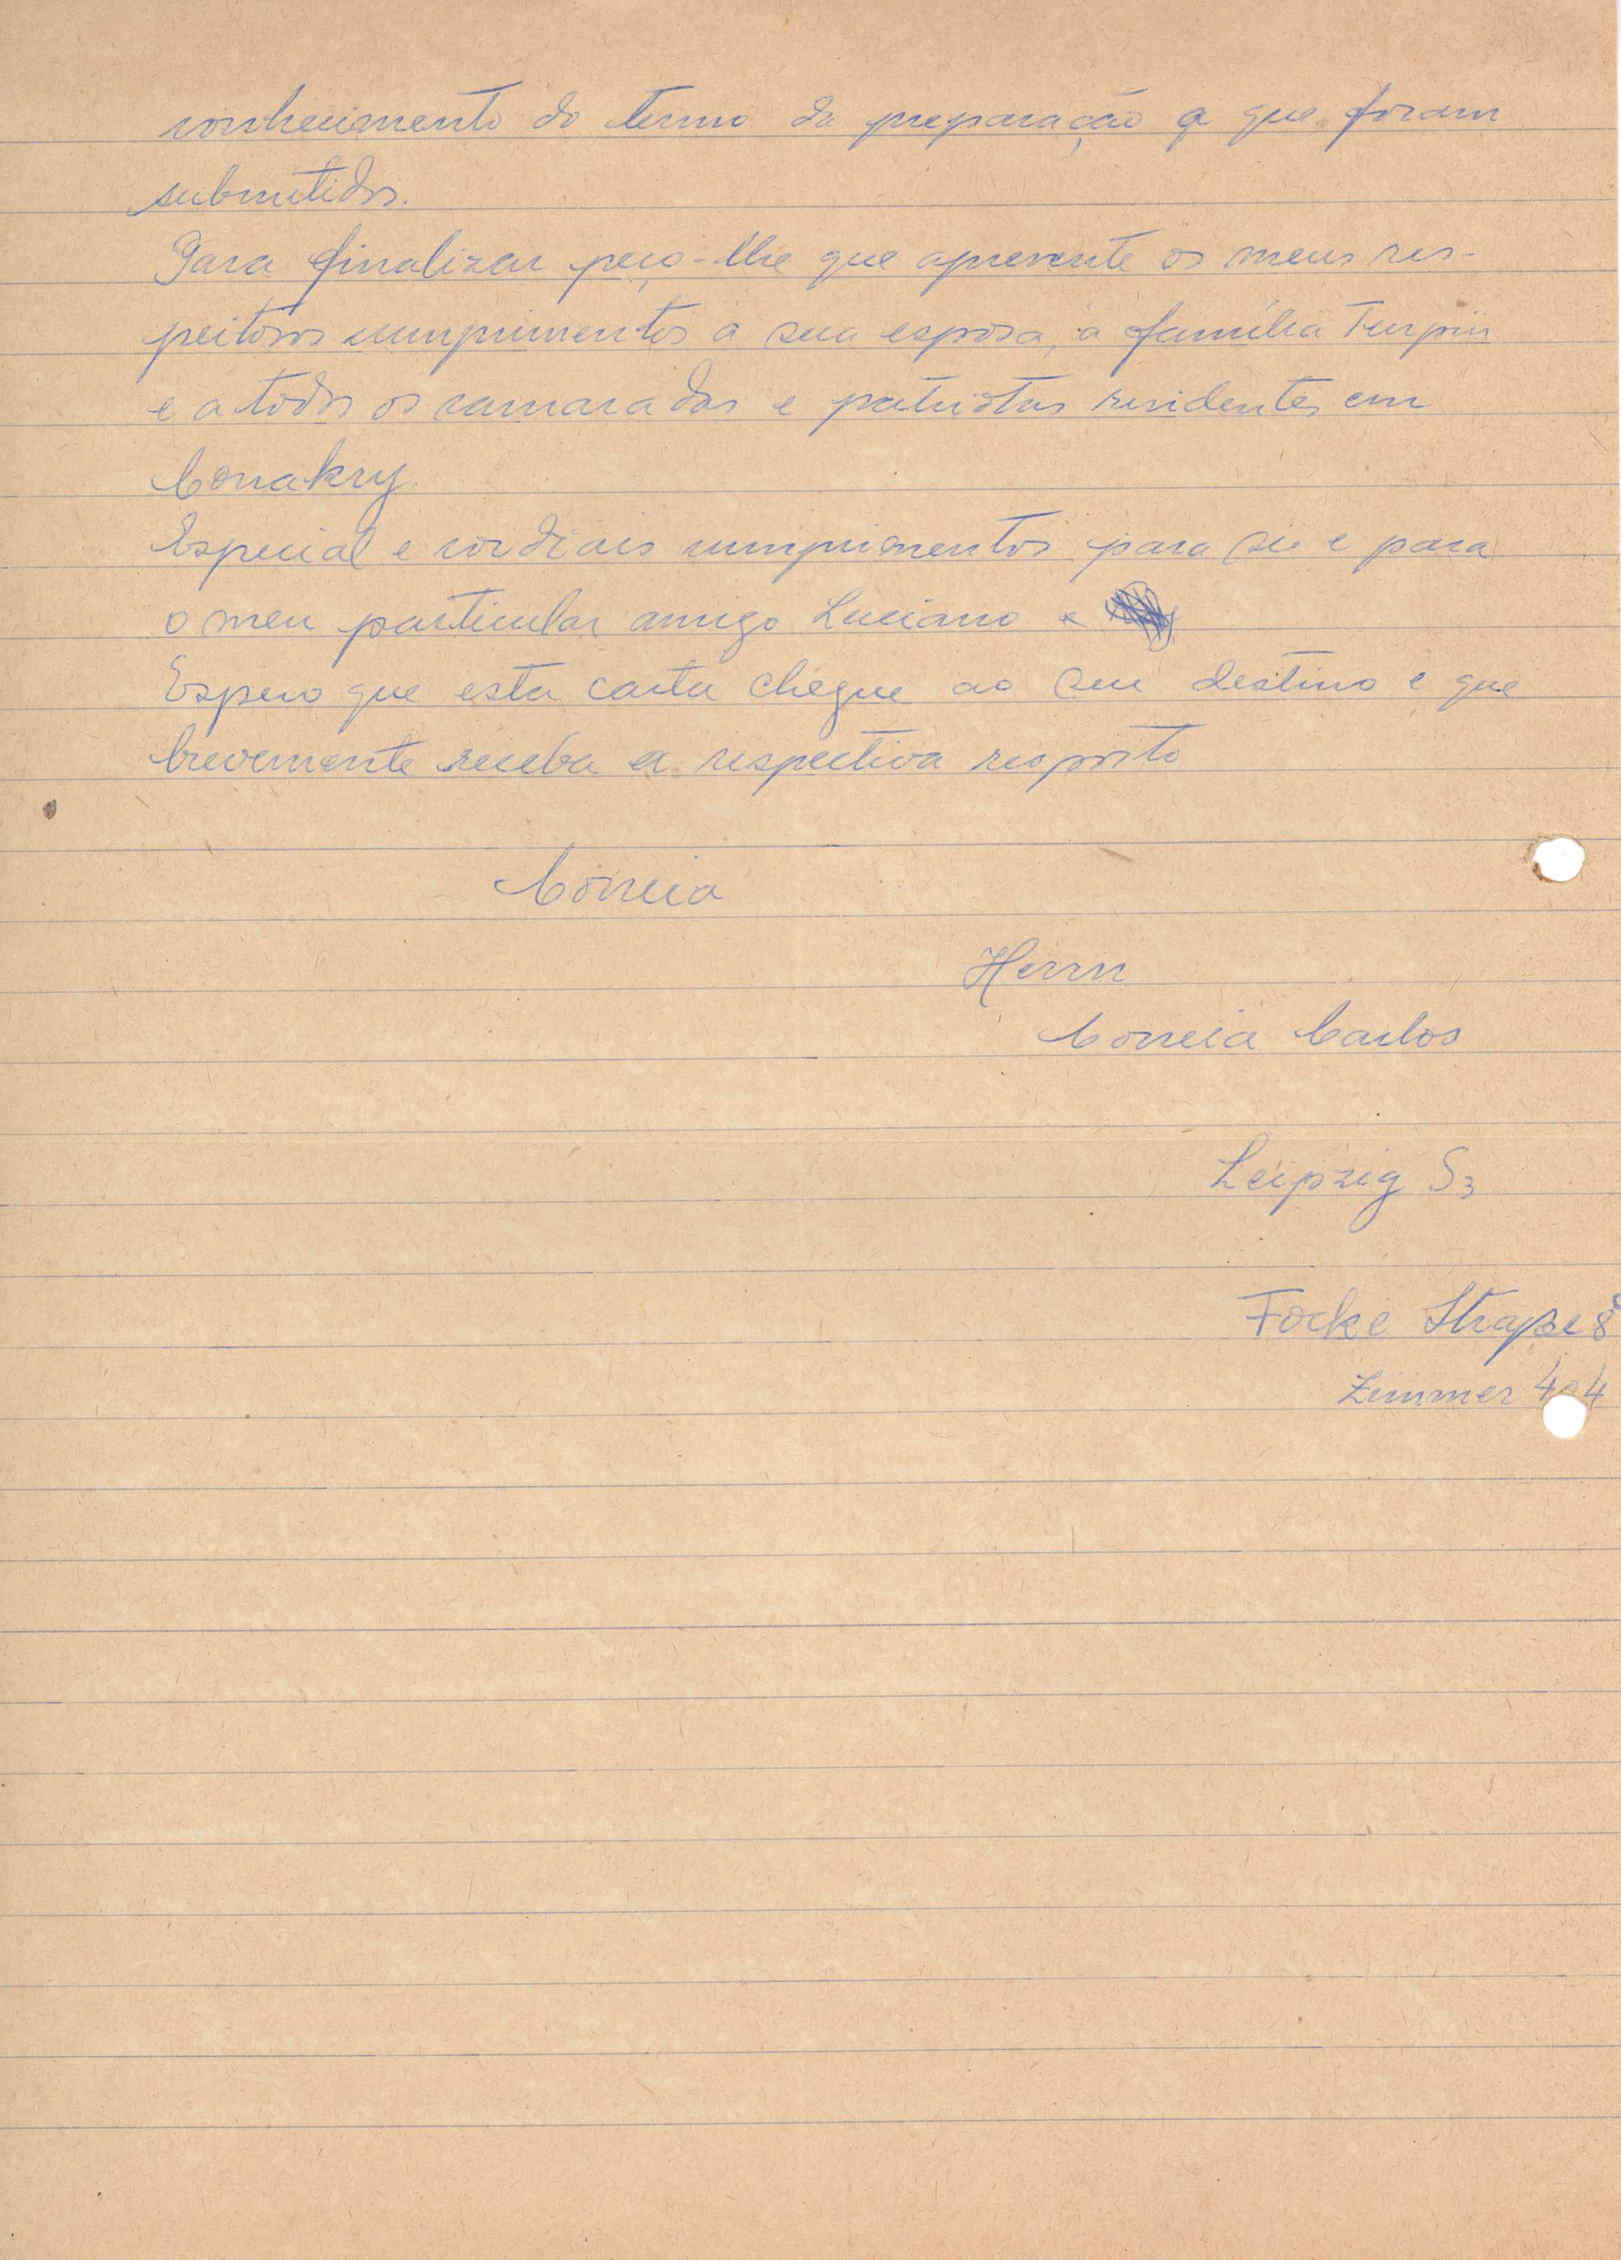 conhecimento do termo da preparação a que foram
submetidos.
Para finalizar peço-lhe que apresente os meus res-
peitosos cumprimentos a sua esposa, a família Turpin
e a todos os camaradas e patriotas residentes em
Conakry.
Especial e cordiais cumprimentos para si e para
o meu particular amigo Luciano
Espero que esta carta chegue ao seu destino e que
brevemente receba a respectiva resposta
Correia
Herrn
Correia Carlos
Leipzig S3
Focke Straße 8
Zimmer 404